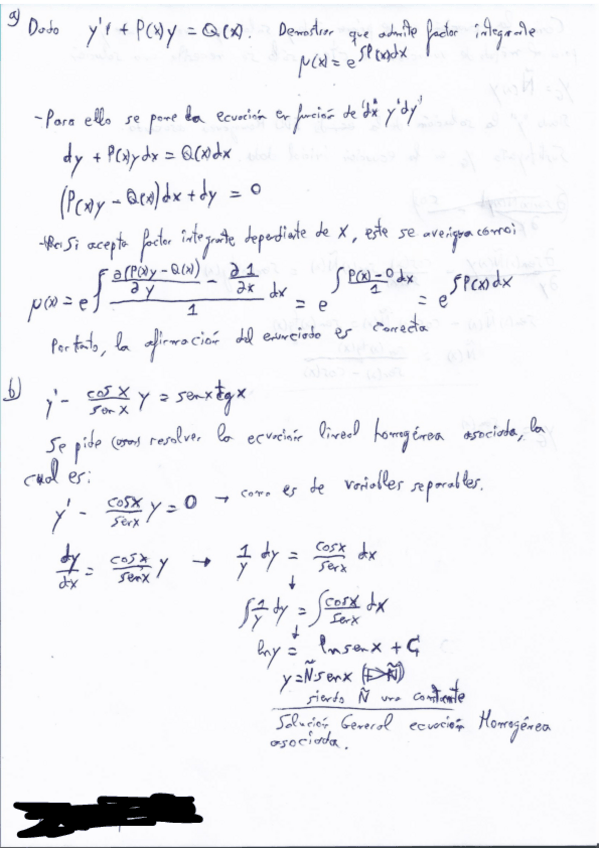 a) Dado y' + P(x)y = Q(x). Demostrar que admite factor integrante
μ(x) = e^∫P(x)dx
- Para ello se pone la ecuación en función de 'dx' y 'dy'
dy + P(x)ydx = Q(x)dx
(P(x)y - Q(x))dx + dy = 0
Si acepta factor integrante dependiente de x, este se averigua como:
μ(x) = e^∫ (∂(P(x)y - Q(x))/∂y - ∂1/∂x)/1 dx = e^∫ (P(x) - 0)/1 dx = e^∫P(x)dx
Por tanto, la afirmación del enunciado es correcta
b) y' - cosx/senx y = senx tgx
Se pide resolver la ecuación lineal homogénea asociada, la
cual es:
y' - cosx/senx y = 0 → como es de variables separables.
dy/dx = cosx/senx y → 1/y dy = cosx/senx dx
↓
∫1/y dy = ∫cosx/senx dx
↓
lny = lnsenx + C
y = Ñsenx
siendo Ñ una constante
Solución General ecuación Homogénea
asociada.